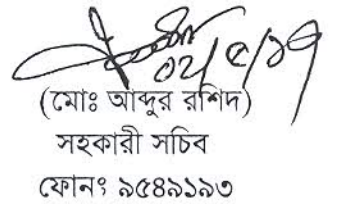 ০২/৫/১৭
(মোঃ আব্দুর রশিদ)
সহকারী সচিব
ফোনঃ ৯৫৪৯১৯৩